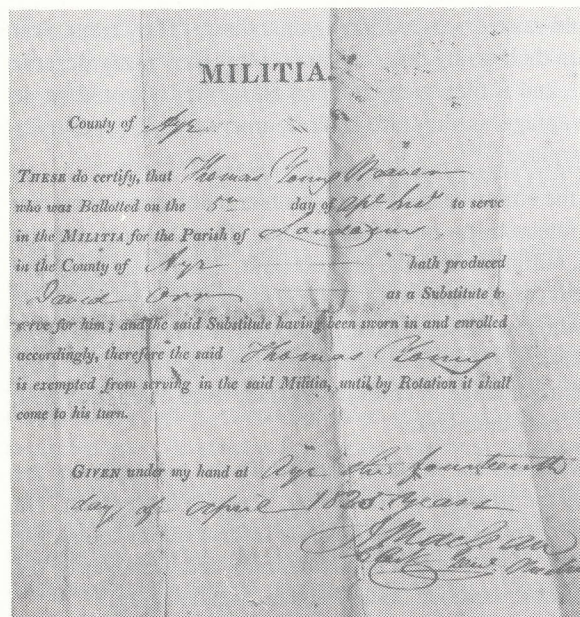 MILITIA.
County of Ayr
THESE do certify, that Thomas Young Weaver
who was Ballotted on the 5th day of Apl. Inst. to serve
in the MILITIA for the Parish of Loudoun
in the County of Ayr hath produced
David Orr as a Substitute to
serve for him; and the said Substitute having been sworn in and enrolled
accordingly, therefore the said Thomas Young
is exempted from serving in the said Militia, until by Rotation it shall
come to his turn.
GIVEN under my hand at Ayr the fourteenth
day of April years
Clerk